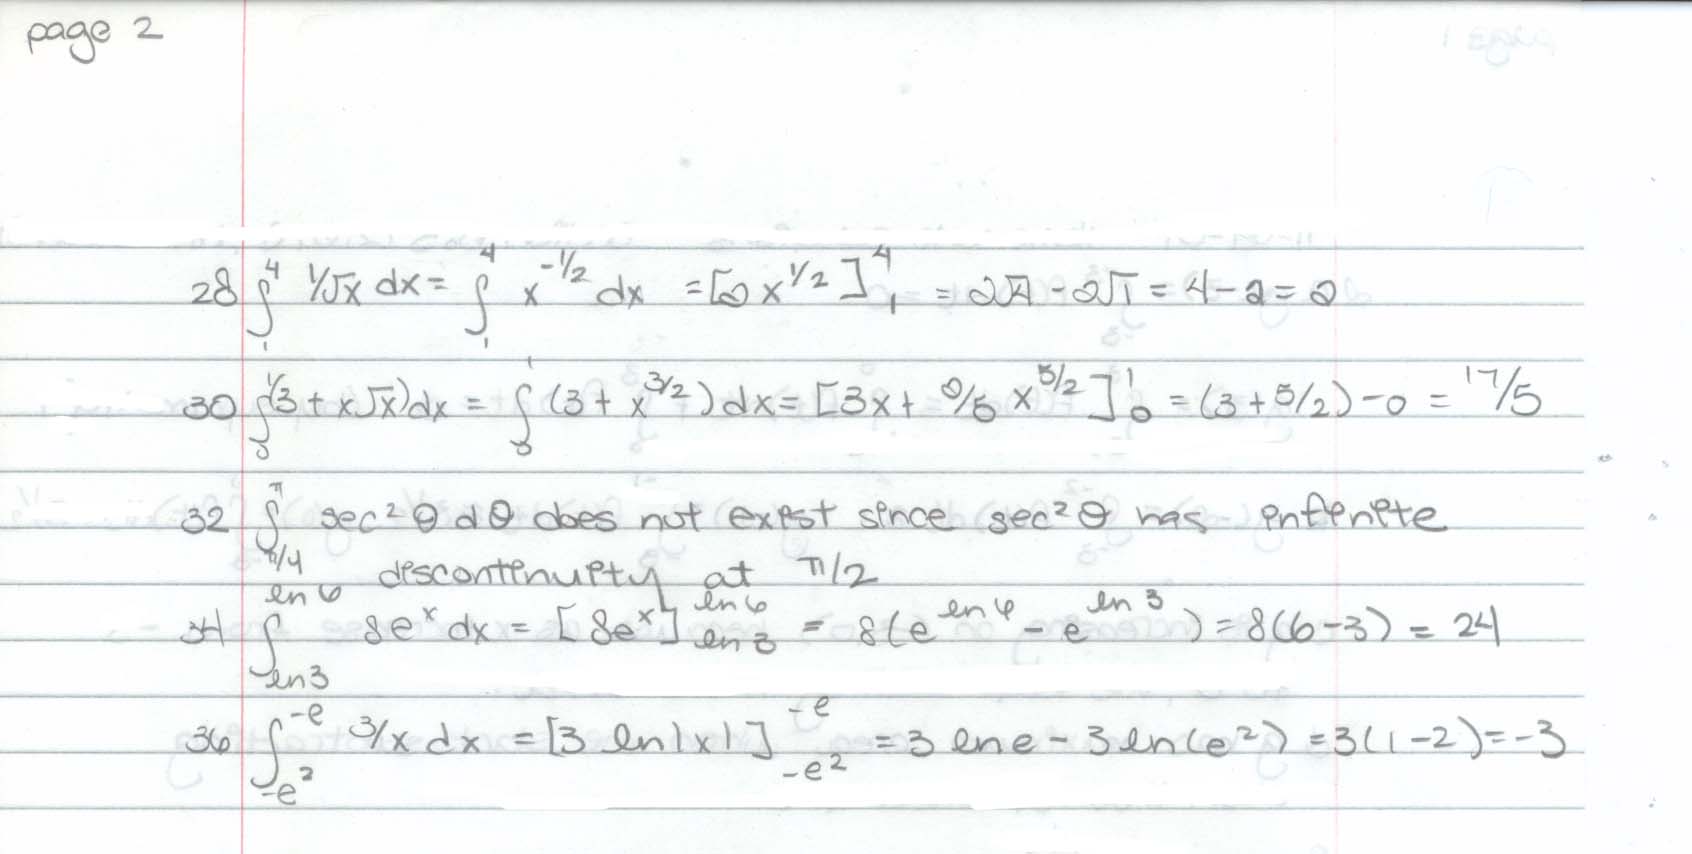 page 2
28 ∫₁⁴ 1/√x dx = ∫₁⁴ x^(-1/2) dx = [2x^(1/2)]₁⁴ = 2√4 - 2√1 = 4 - 2 = 2
30 ∫₀¹ (3 + x√x) dx = ∫₀¹ (3 + x^(3/2)) dx = [3x + 2/5 x^(5/2)]₀¹ = (3 + 5/2) - 0 = 17/5
32 ∫_(π/4)^π sec² θ dθ does not exist since sec² θ has infinite
discontinuity at π/2
34 ∫_(ln 3)^(ln 6) 8e^x dx = [8e^x]_(ln 3)^(ln 6) = 8(e^(ln 6) - e^(ln 3)) = 8(6-3) = 24
36 ∫_(-e²)^(-e) 3/x dx = [3 ln|x|]_(-e²)^(-e) = 3 ln e - 3 ln(e²) = 3(1-2) = -3